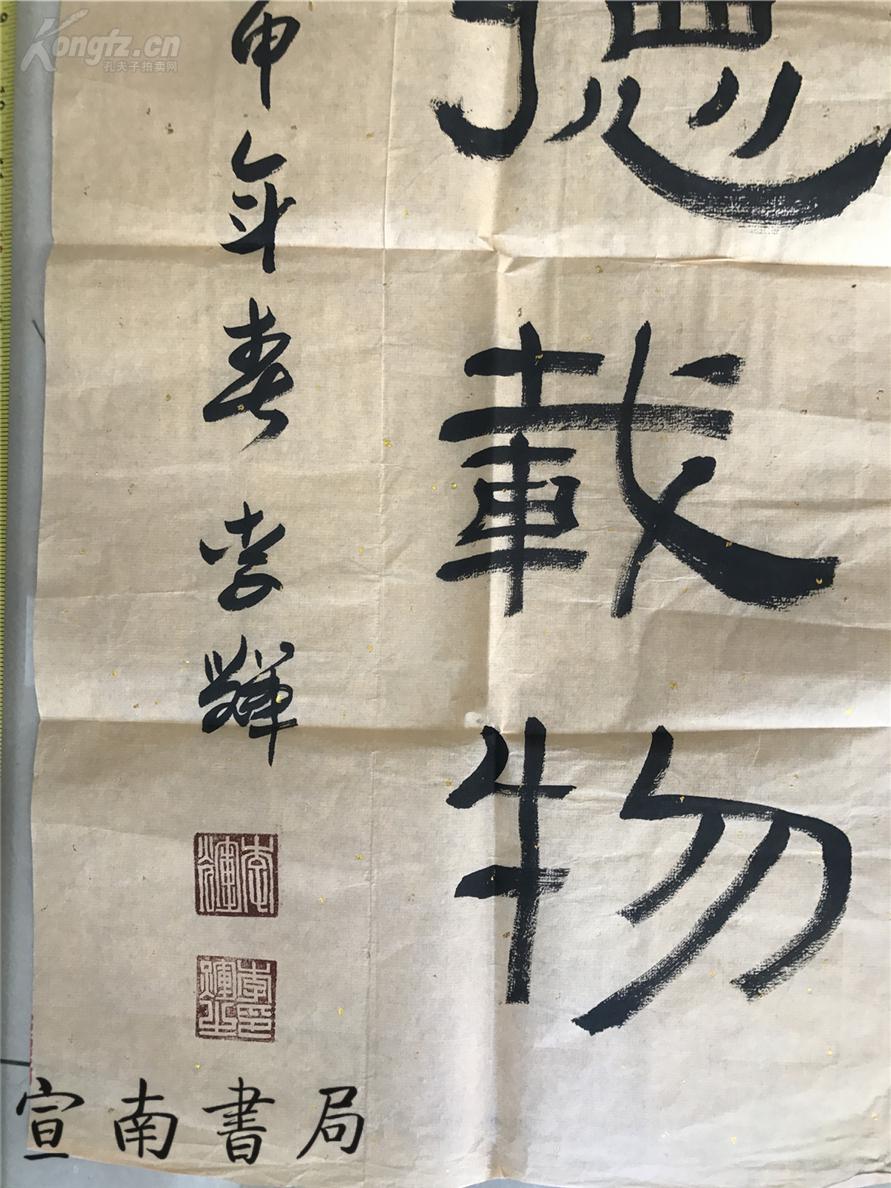 德載物
申年春 李輝
李輝
李輝之印
宣南書局
Kongfz.cn
孔夫子拍卖网